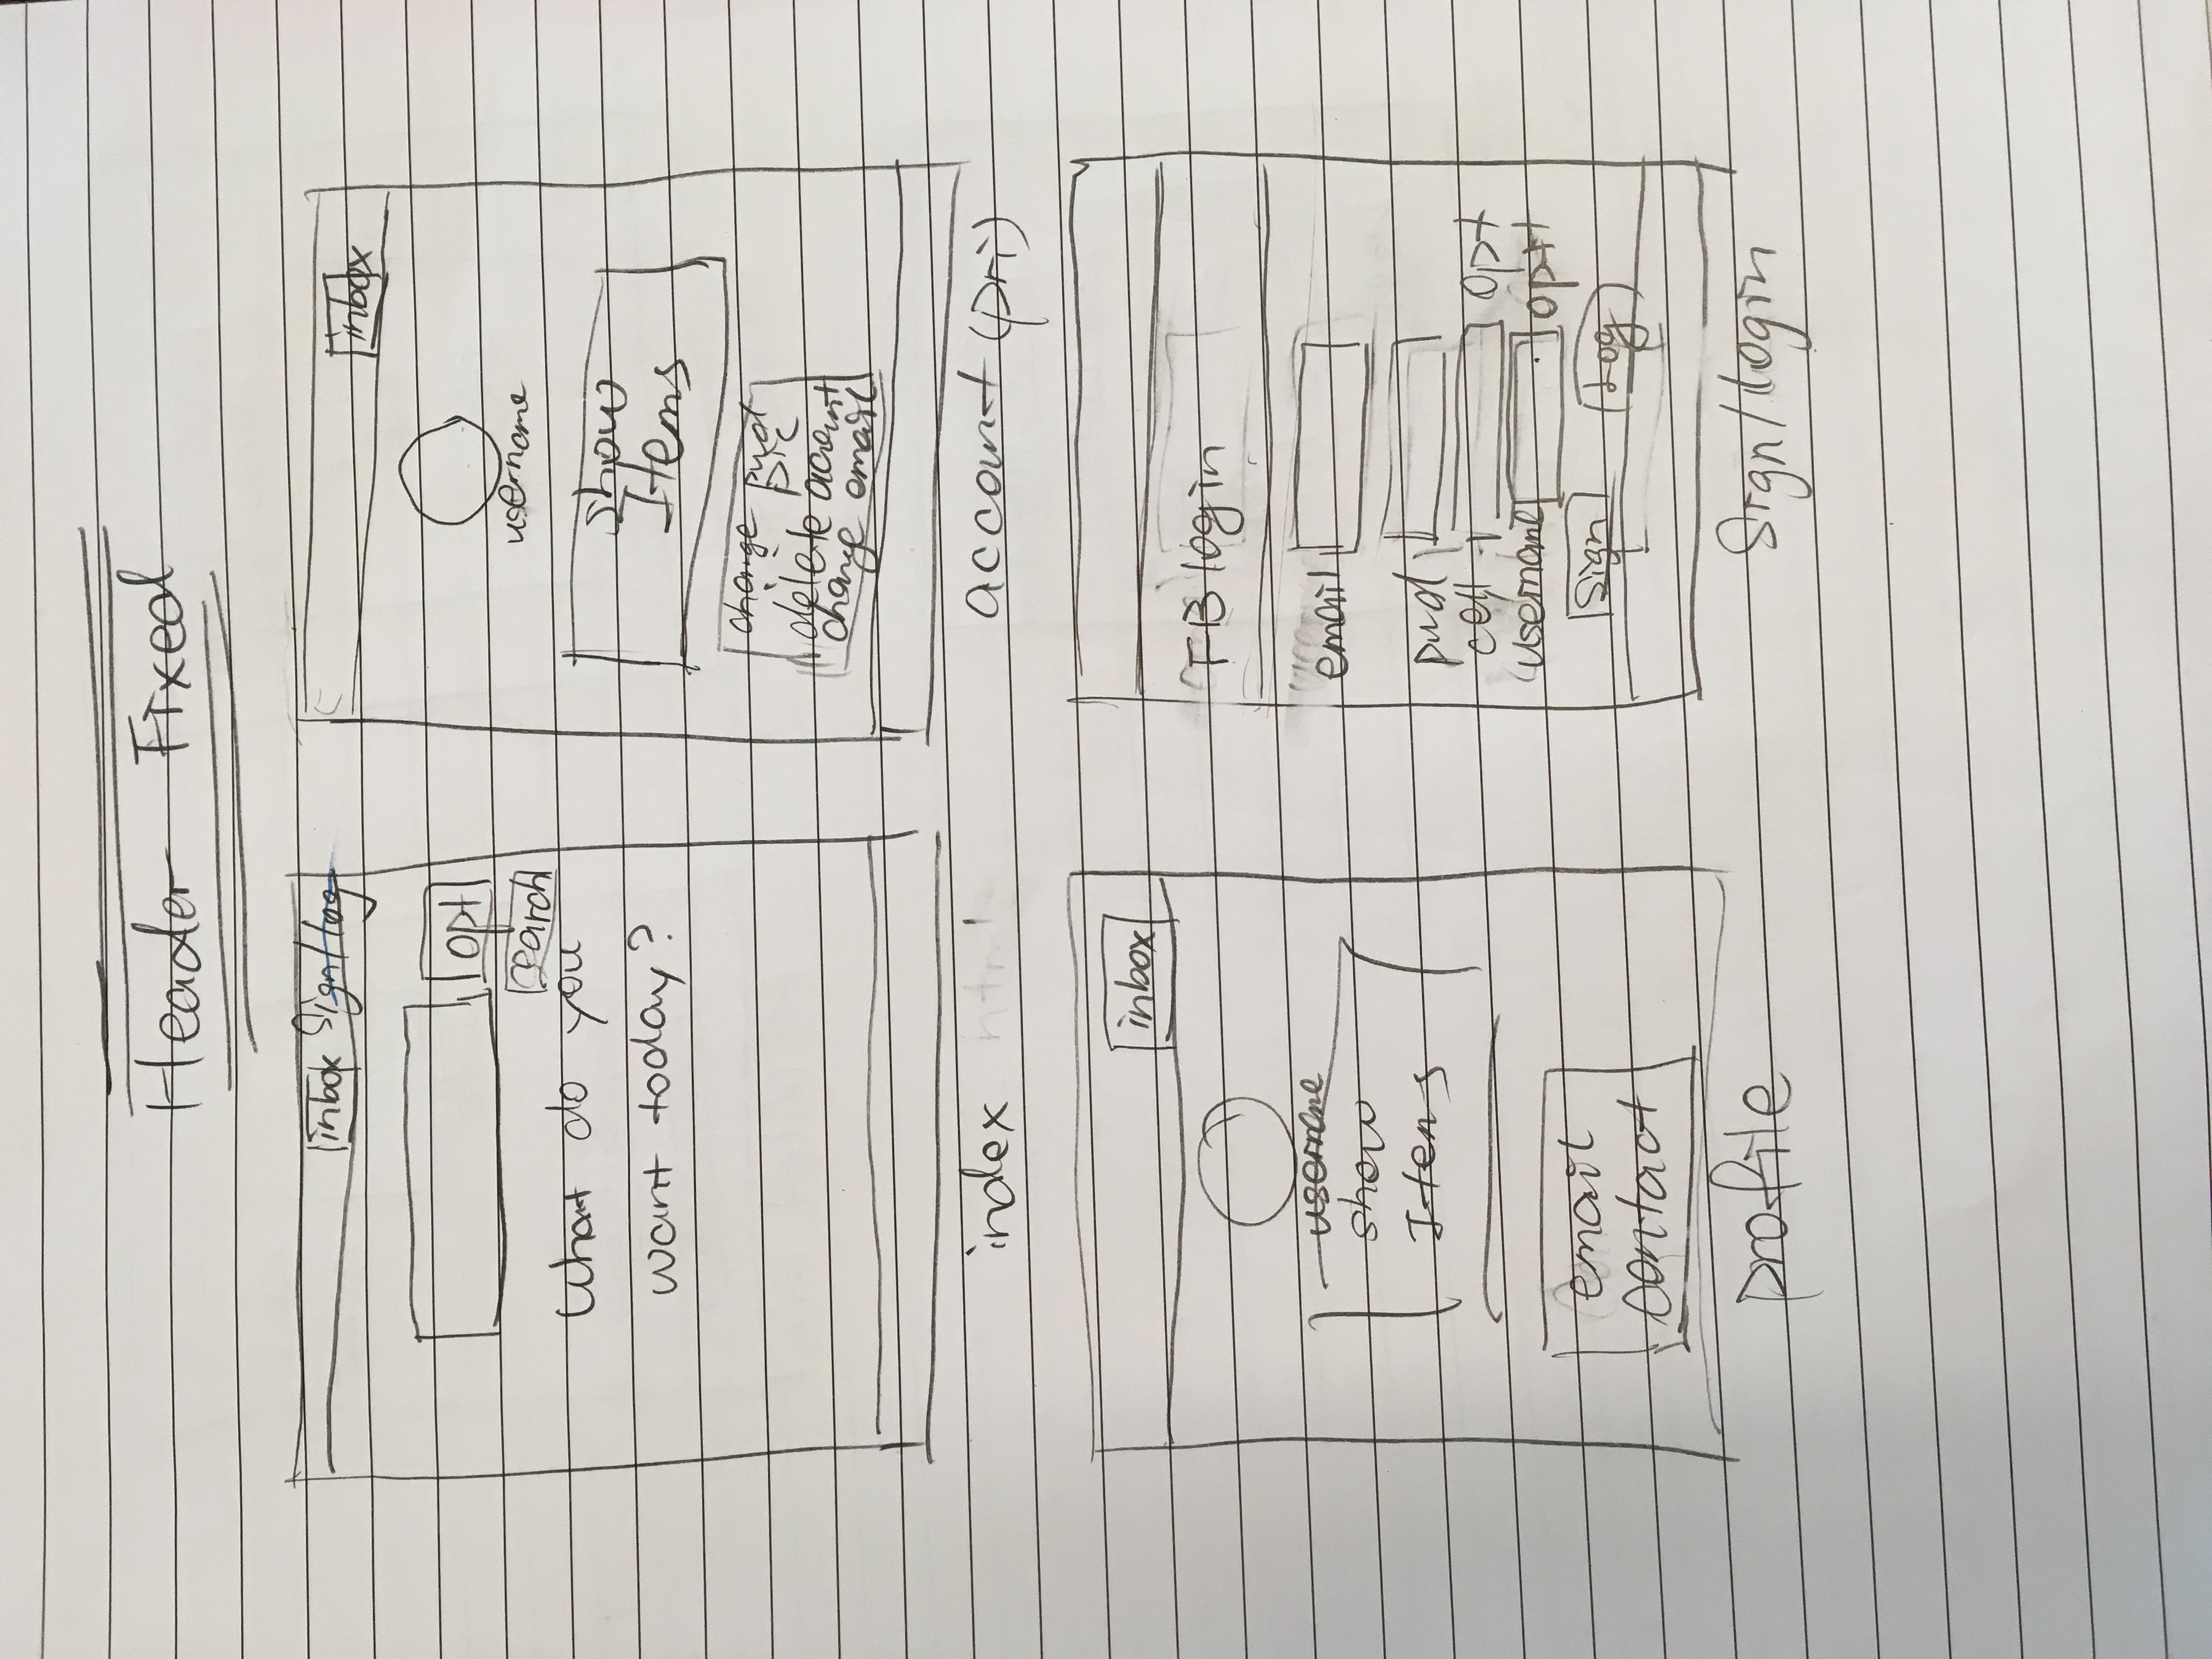 Header Fixed
inbox Sign/log
opt
search
What do you
want today?
index html
inbox
username
Show
Items
change pwd
pic
delete account
change email
account (pri)
inbox
username
show
Items
email
contact
profile
FB login
email
pwd
cell opt
username opt
Sign Log
Sign/login